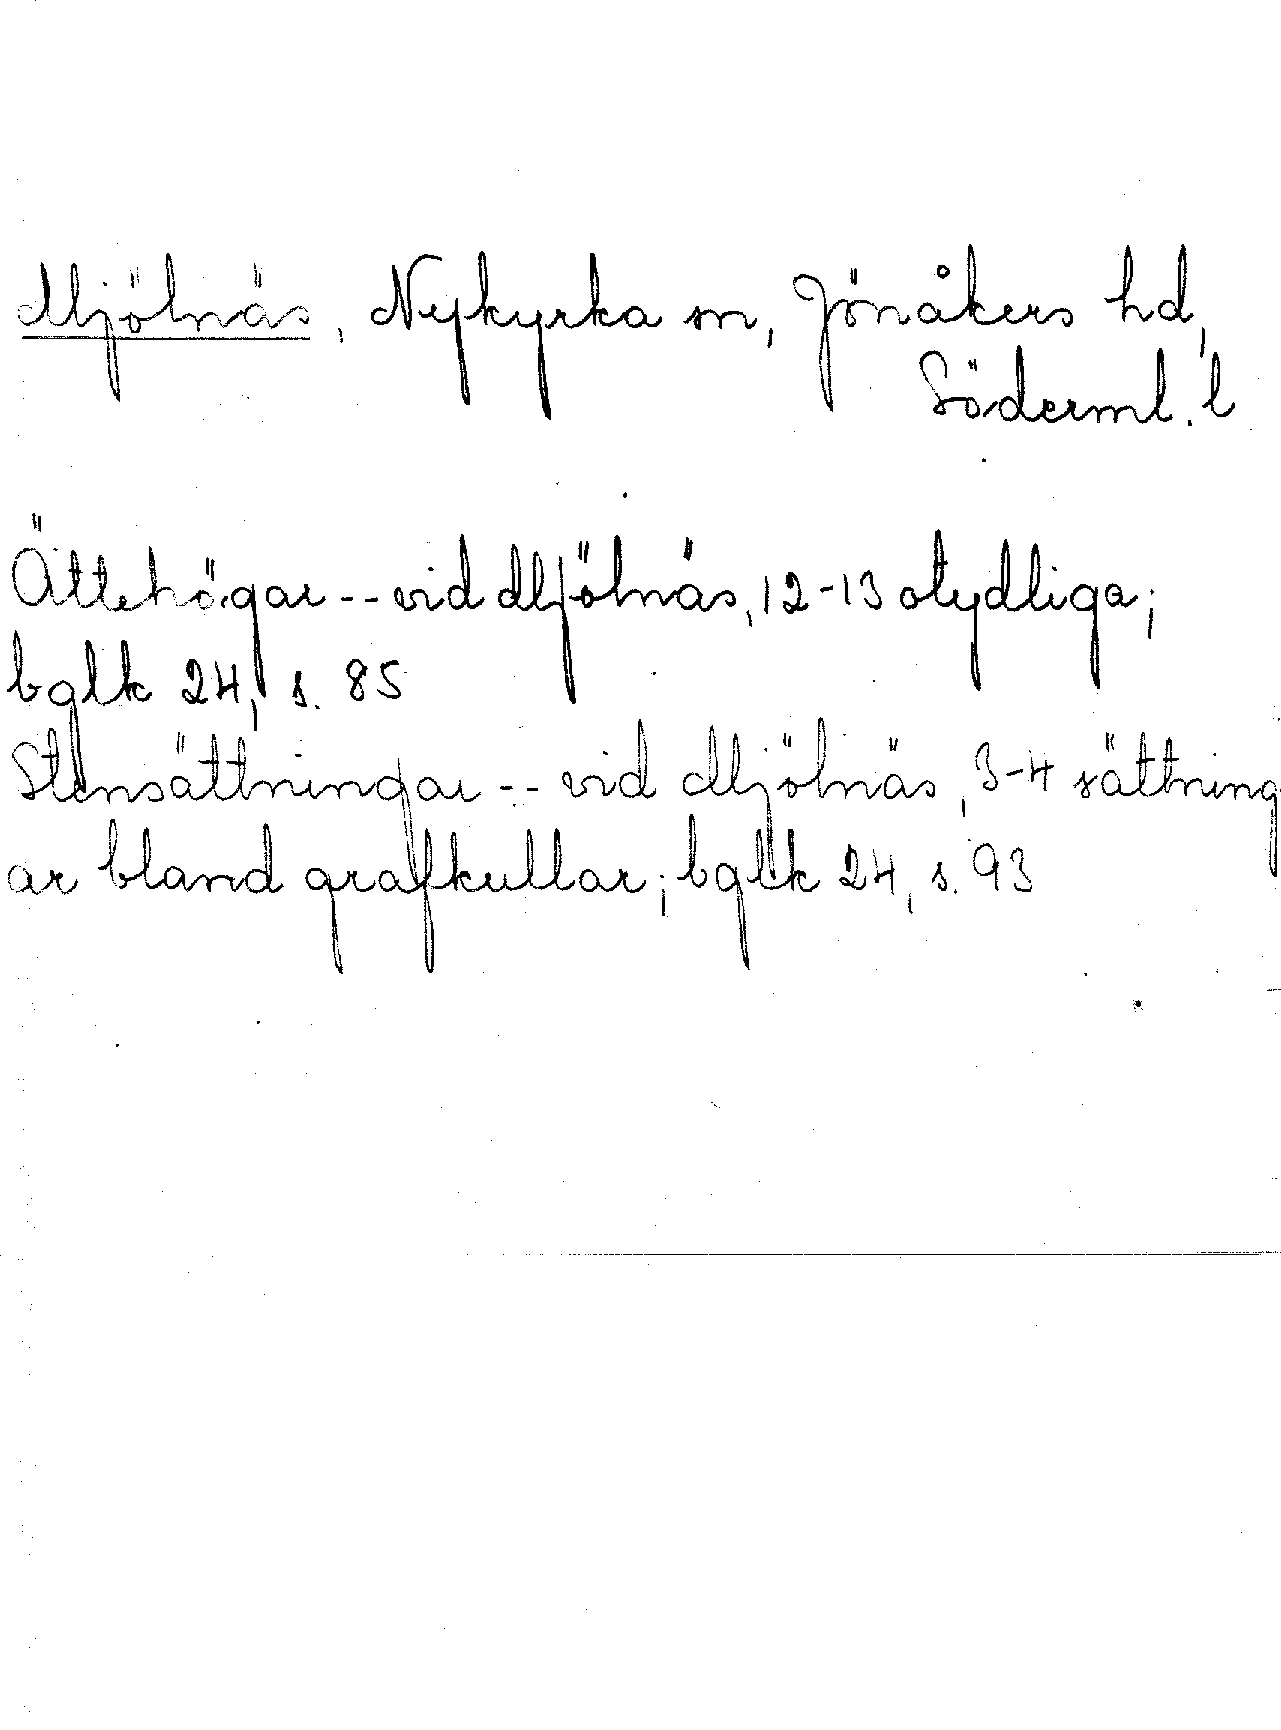 Mjölnäs, Nykyrka sn, Jönåkers hd,
Söderml. l
Ättehögar -- vid Mjölnäs, 12-13 otydliga;
bglk 24, s. 85
Stensättningar -- vid Mjölnäs, 3-4 sättning
ar bland grafkullar; bglk 24, s. 93